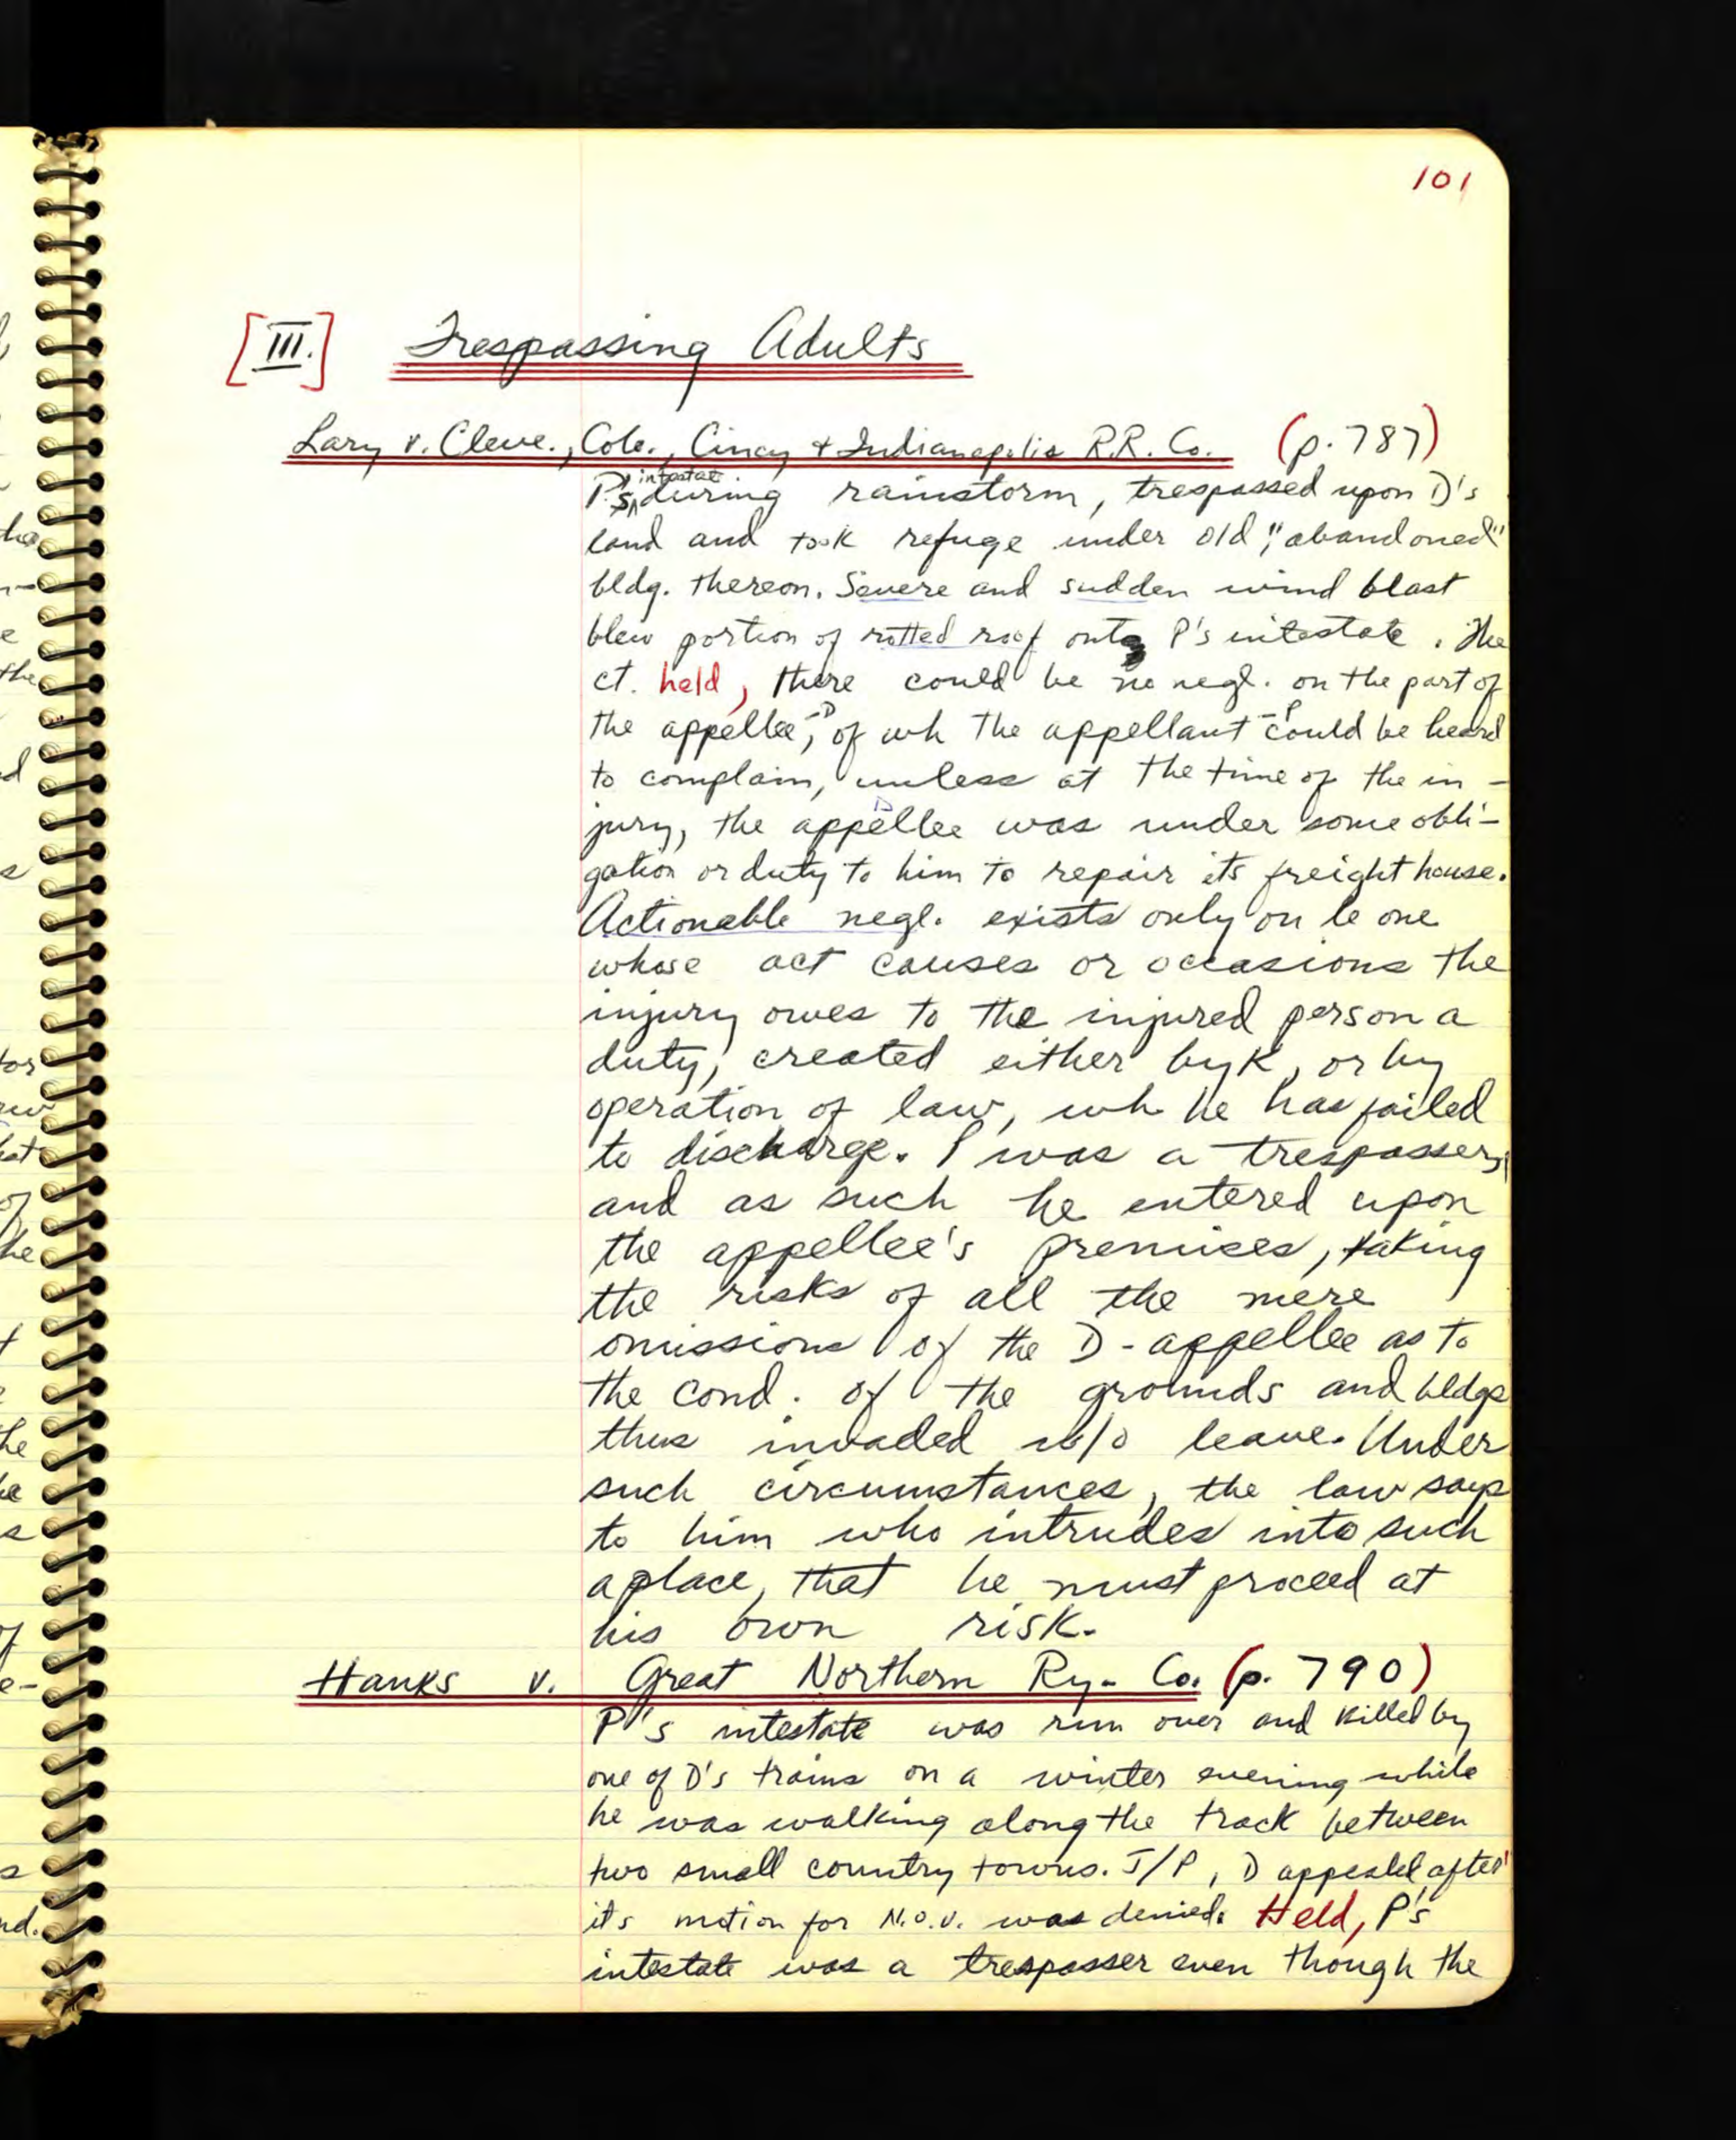 101
[III.] Trespassing Adults
Lary v. Cleve., Colo., Cincy & Indianapolis R.R. Co. (p. 787)
P's intestate during rainstorm, trespassed upon D's
land and took refuge under old, "abandoned"
bldg. thereon. Severe and sudden wind blast
blew portion of rotted roof onto P's intestate. The
ct. held, there could be no negl. on the part of
the appellee-D, of wh the appellant-P could be heard
to complain, unless at the time of the in-
jury, the appellee D was under some obli-
gation or duty to him to repair its freight house.
Actionable negl. exists only on le one
whose act causes or occasions the
injury owes to the injured person a
duty, created either by K, or by
operation of law, wh he has failed
to discharge. P was a trespasser,
and as such he entered upon
the appellee's premises, taking
the risks of all the mere
omissions of the D-appellee as to
the cond. of the grounds and bldgs
thus invaded w/o leave. Under
such circumstances, the law says
to him who intrudes into such
a place, that he must proceed at
his own risk.
Hanks v. Great Northern Ry. Co. (p. 790)
P's intestate was run over and killed by
one of D's trains on a winter evening while
he was walking along the track between
two small country towns. J/P, D appealed after
its motion for N.O.V. was denied. Held, P's
intestate was a trespasser even though the